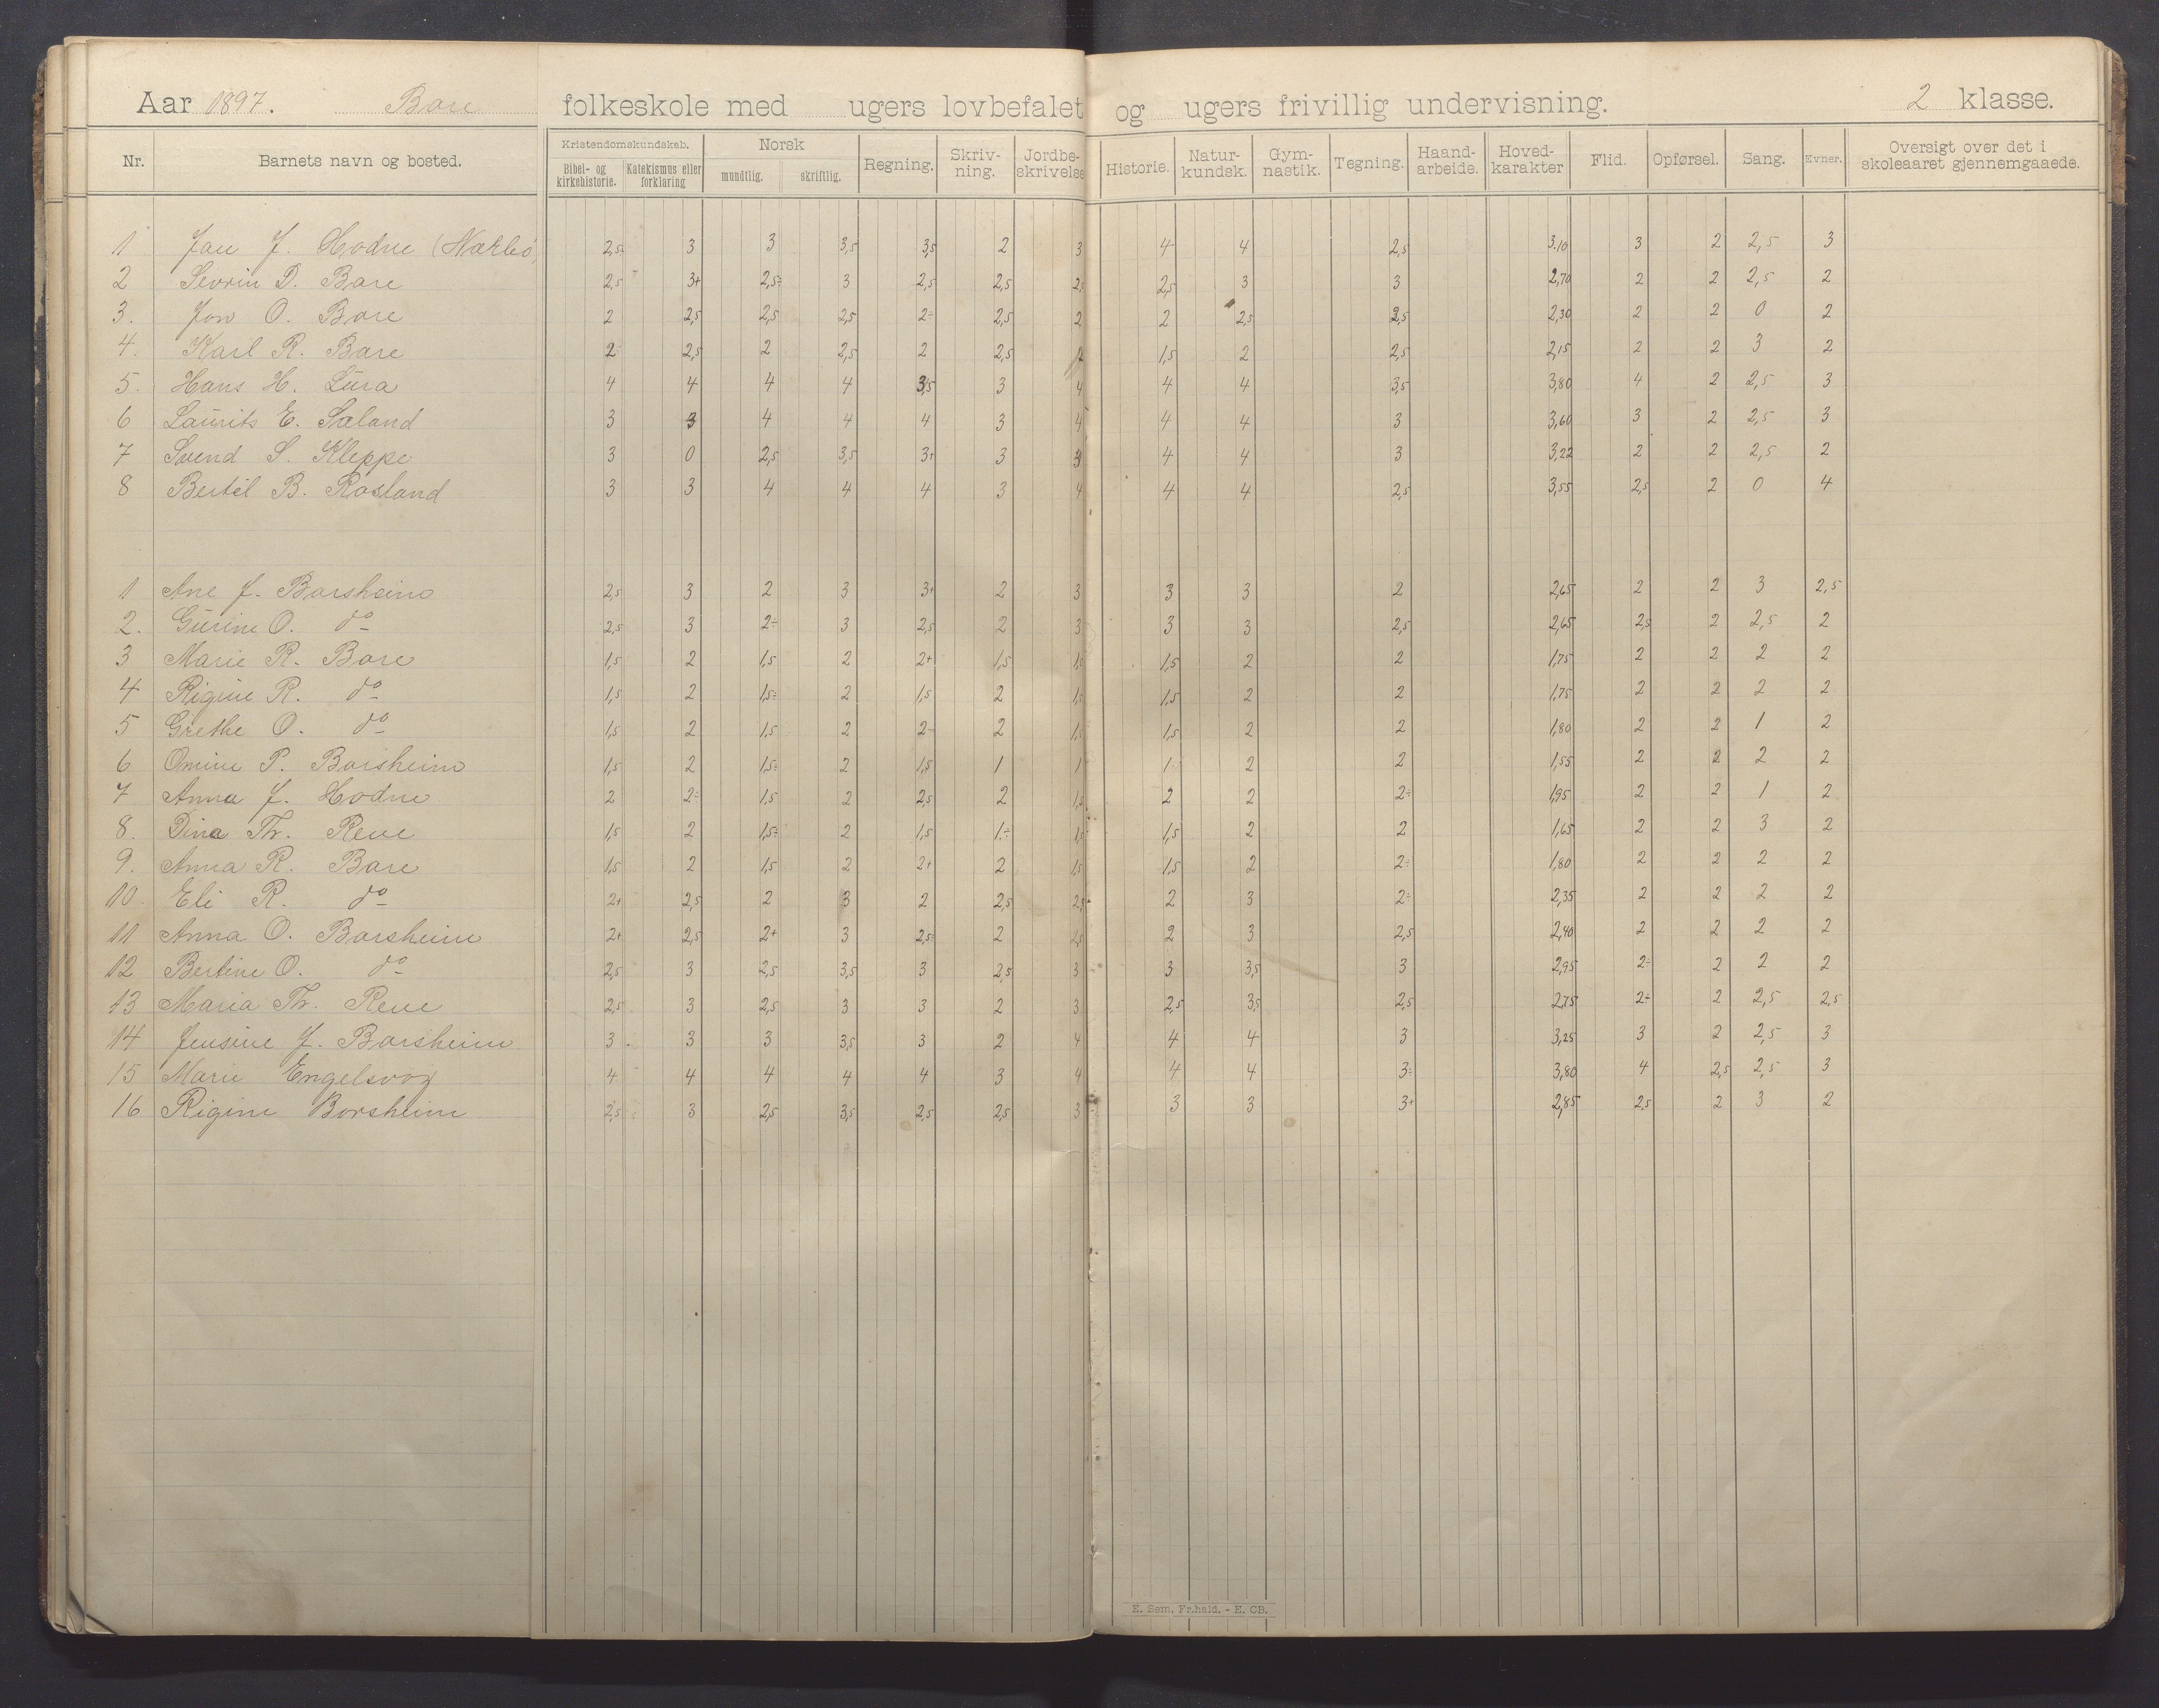 Aar 1897. Bore folkeskole med ugers lovbefalet og ugers frivillig undervisning. 2 klasse.
Nr. Barnets navn og bosted. Kristendomskundskab. Bibel- og kirkehistorie. Katekismus eller forklaring Norsk mundtlig. skriftlig. Regning. Skriv-ning. Jordbe-skrivelse Historie. Natur-kundsk. Gym-nastik. Tegning. Haand-arbeide. Hoved-karakter Flid. Opførsel. Sang. Evner. Oversigt over det i skoleaaret gjennemgaaede.
1 Jan J. Hodne (Nærbø) 2,5÷ 3 3 3,5 3,5 2 3 4 4 2,5 3.10 3 2 2,5 3
2 Sevrin D. Bore 2,5 3+ 2,5÷ 3 2,5 2,5 2,5 2,5 3 3 2,70 2 2 2,5 2
3. Jon O. Bore 2 2,5 2,5 2,5 2÷ 2,5 2 2 2,5 2,5 2,30 2 2 0 2
4. Karl R. Bore 2 2,5 2 2,5 2 2,5 2 1,5 2 2,5 2,15 2 2 3 2
5. Hans H. Lura 4 4 4 4 3,5 3 4 4 4 3,5 3,80 4 2 2,5 3
6 Laurits E. Sæland 3 3 4 4 4 3 4 4 4 3 3,60 3 2 2,5 3
7 Svend S. Kleppe 3 0 2,5 3,5 3+ 3 3 4 4 3 3,22 2 2 2,5 2
8 Bertel B. Rosland 3 3 4 4 4 3 4 4 4 2,5 3,55 2,5 2 0 4
1 Ane J. Borsheim 2,5 3 2 3 3+ 2 3 3 3 2 2,65 2 2 3 2,5
2. Gurine O. do 2,5 3 2÷ 3 2,5 2 3 3 3 2,5 2,65 2,5 2 2,5 2
3 Marie R. Bore 1,5 2 1,5 2 2+ 1,5 1,5 1,5 2 2 1,75 2 2 2 2
4 Rigine R. do 1,5 2 1,5÷ 2 1,5 2 1,5 1,5 2 2 1,75 2 2 2 2
5 Grethe O. do 1,5 2 1,5 2 2÷ 2 1,5 1,5 2 2 1,80 2 2 1 2
6 Omine P. Borsheim 1,5 2 1,5÷ 2 1,5 1 1 1 2 2 1,55 2 2 2 2
7 Anna J. Hodne 2 2÷ 1,5 2 2,5 2 1,5 2 2 2÷ 1,95 2 2 1 2
8. Dina Th. Reve 1,5 2 1,5÷ 2 1,5 1÷ 1,5 1,5 2 2 1,65 2 2 3 2
9. Anna R. Bore 1,5 2 1,5 2 2+ 2 1,5 1,5 2 2÷ 1,80 2 2 2 2
10. Eli R. do 2+ 2,5 2 3 2 2,5 2,5 2 3 2÷ 2,35 2 2 2 2
11 Anna O. Borsheim 2+ 2,5 2+ 3 2,5÷ 2 2,5 2 3 2,5 2,40 2 2 2 2
12 Bertine O. do 2,5 3 2,5 3,5 3 2,5 3 3 3,5 3 2,95 2÷ 2 2 2
13 Maria Th. Reve 2,5 3 2,5 3 3 2 3 2,5 3,5 2,5 2,75 2÷ 2 2,5 2,5
14 Jensine J. Borsheim 3 3 3 3,5 3 2 4 4 4 3 3,25 3 2 2,5 3
15 Marie Engelsvog 4 4 4 4 4 3 4 4 4 3÷ 3,80 4 2,5 2,5 3
16 Rigine Borsheim 2,5 3 2,5 3,5 2,5 2,5 3 3 3 3+ 2,85 2,5 2 3 2
E. Sem. Fr.hald. - E. CB.